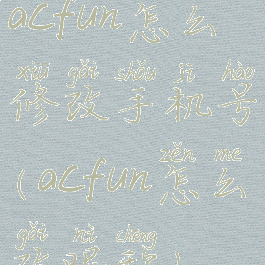 acfun怎么
xiū gǎi shǒu jī hào
修改手机号
zěn me
(acfun怎么
gǎi nì chēng
改昵称)